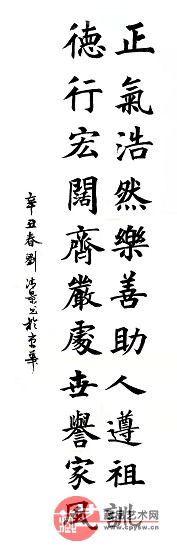 正氣浩然樂善助人遵祖訓
德行宏闊齊嚴處世譽家風
辛丑春劉
書於京華
艺术网
www.cpysw.cn